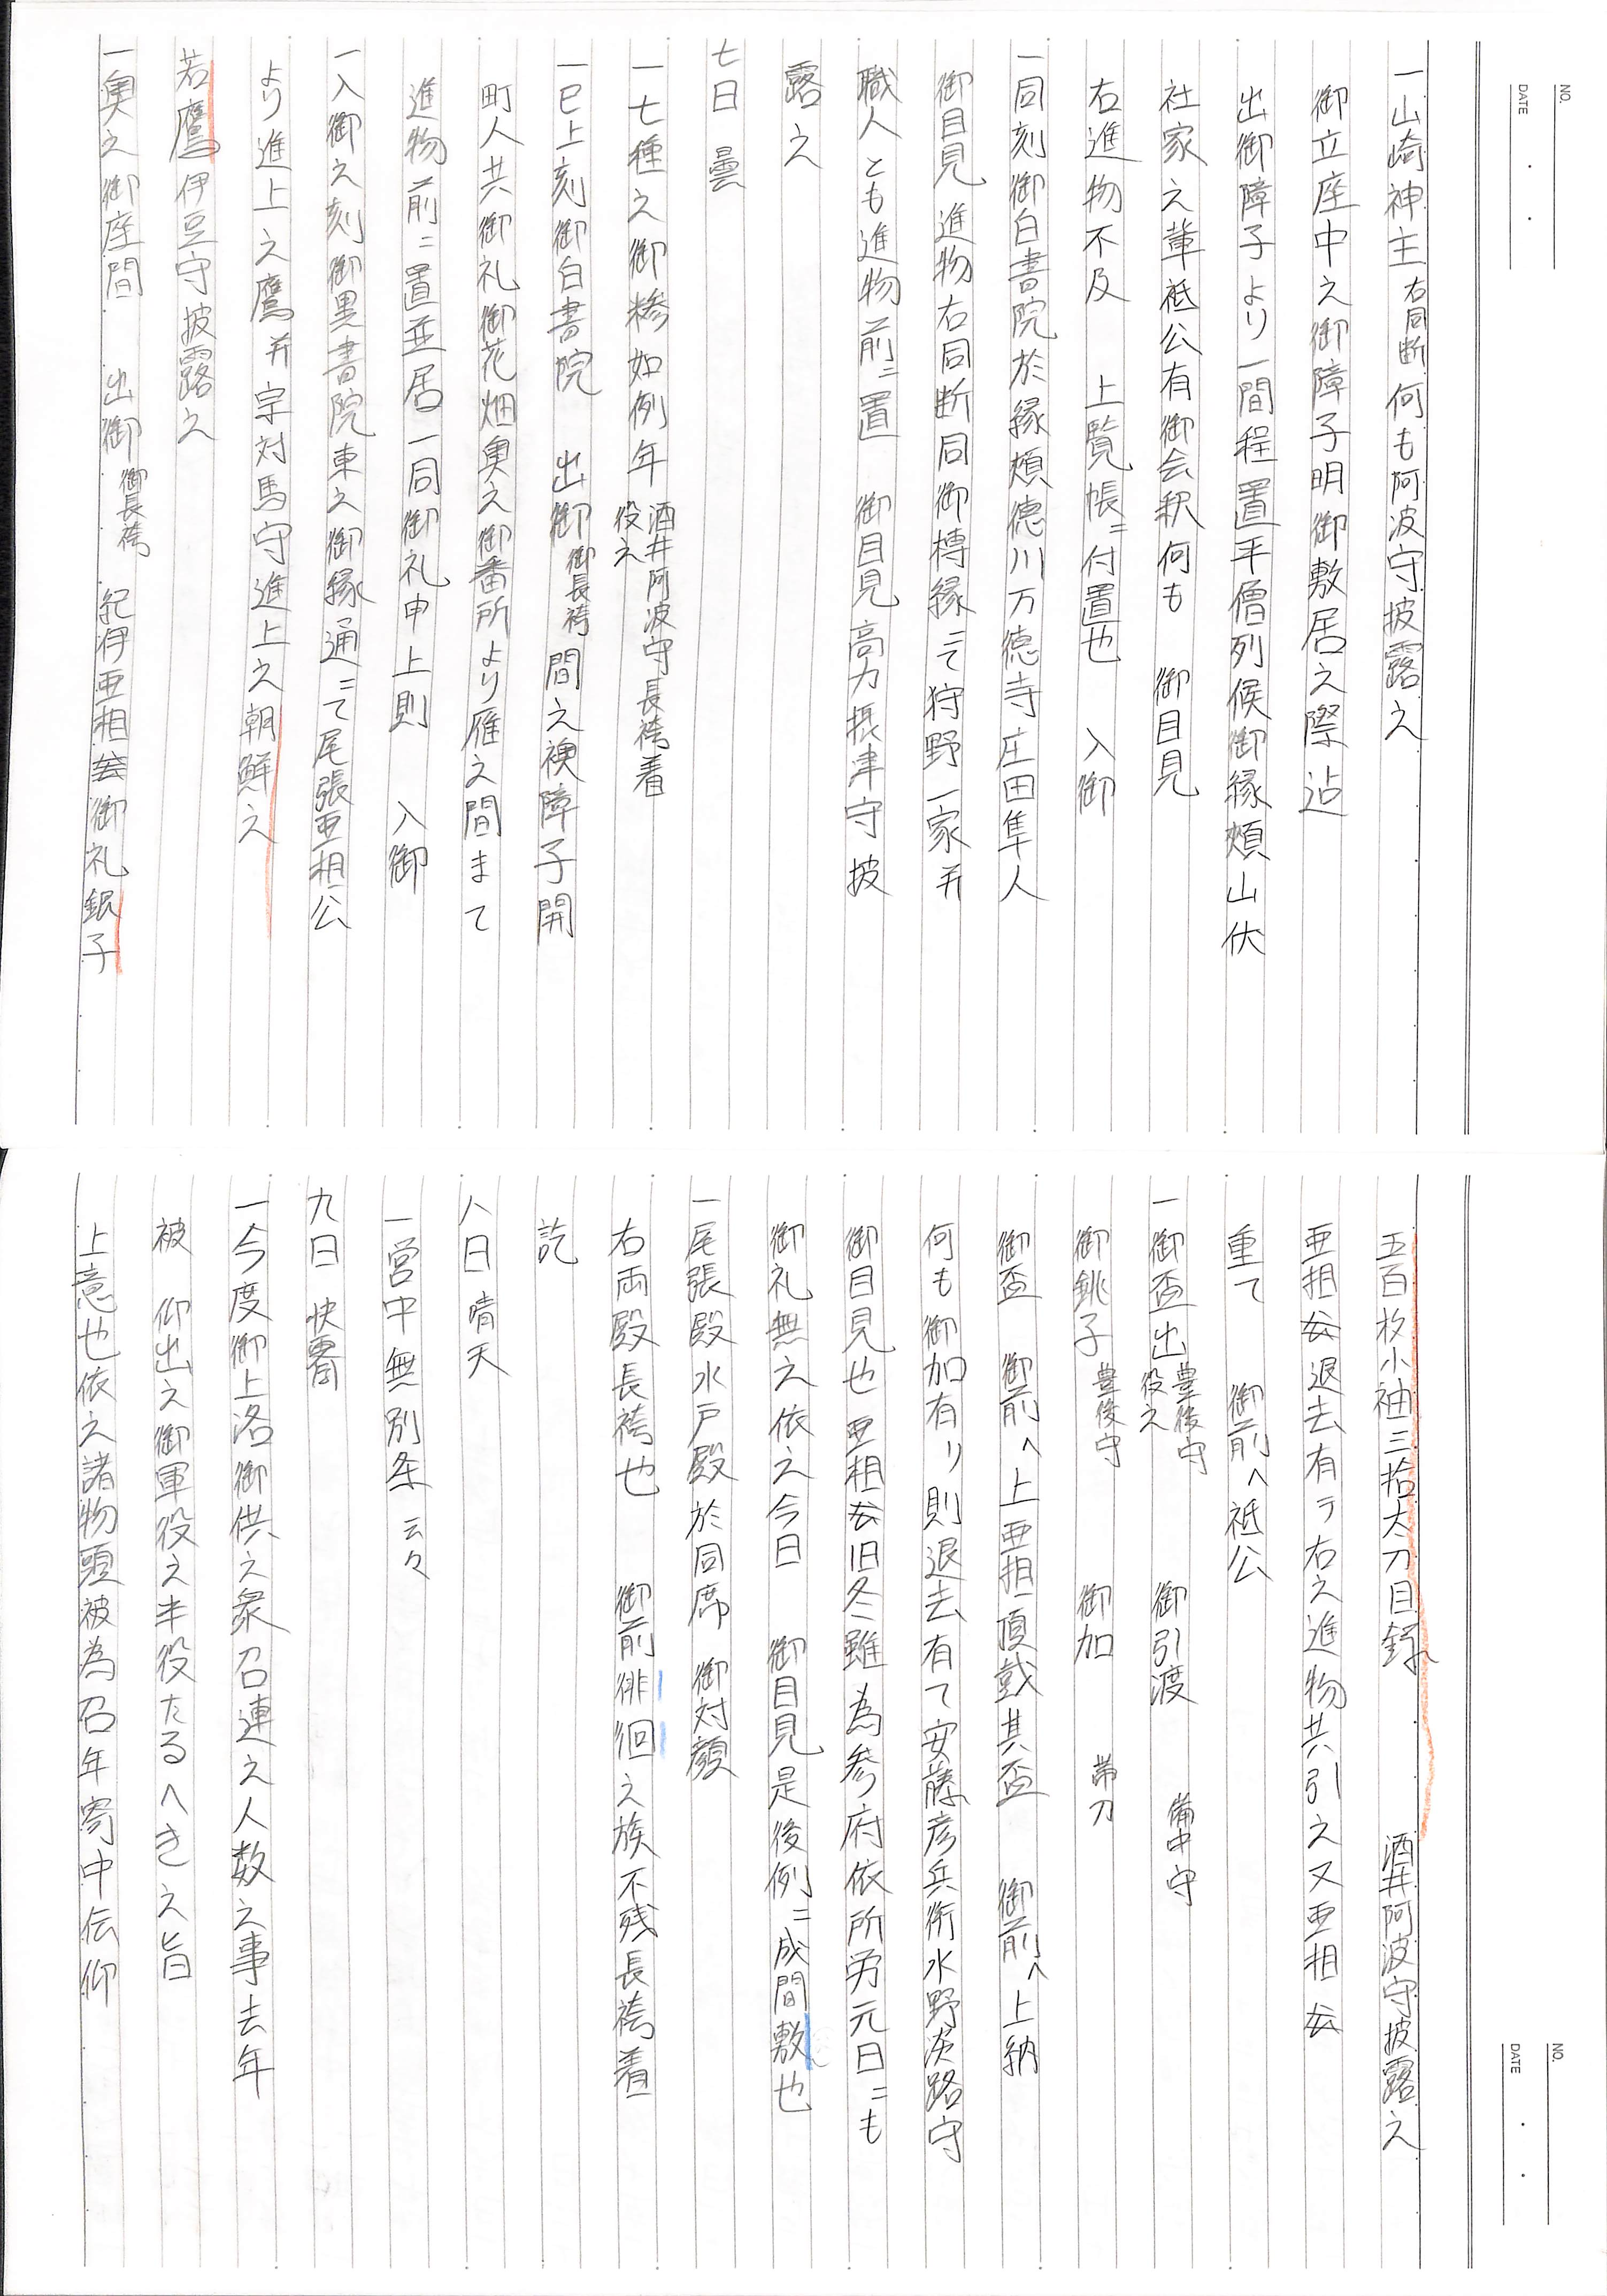 NO.
DATE
一山崎神主 右同断 何も阿波守披露之
御立座中之御障子明御敷居之際迠
出御障子より一間程置平僧列候御縁頬山伏
社家之輩祗公有御会釈何も 御目見
右進物不及 上覧帳ニ付置也 入御
一同刻御白書院於縁頬徳川万徳寺庄田隼人
御目見進物右同断同御槫縁ニて狩野一家并
職人とも進物前ニ置 御目見高力摂津守披
露之
七日 曇
一七種之御糝如例年 酒井阿波守長袴着
役之
一巳上刻御白書院 出御 御長袴 間之襖障子開
町人共御礼御花畑奥之御番所より雁之間まて
進物前ニ置並居一同御礼申上則 入御
一入御之刻御黒書院東之御縁通ニて尾張亜相公
より進上之鷹并宗対馬守進上之朝鮮之
若鷹伊豆守披露之
一奥之御座間 出御 御長袴 紀伊亜相公御礼銀子
NO.
DATE
五百枚小袖三拾太刀目録 酒井阿波守披露之
亜相公退去有テ右之進物共引之又亜相公
重て 御前へ祗公
一御盃出 豊後守 御引渡 備中守
役之
御銚子 豊後守 御加 帯刀
御盃 御前へ上亜相頂戴其盃 御前へ上納
何も御加有リ則退去有て安藤彦兵衛水野淡路守
御目見也亜相公旧冬雖為参府依所労元日ニも
御礼無之依之今日 御目見是後例ニ成間敷也
一尾張殿水戸殿於同席 御対顔
右両殿長袴也 御前徘徊之族不残長袴着
訖
八日 晴天
一営中無別条云々
九日 快霽
一今度御上洛御供之衆召連之人数之事去年
被 仰出之御軍役之半役たるへき之旨
上意也依之諸物頭被為召年寄中伝仰